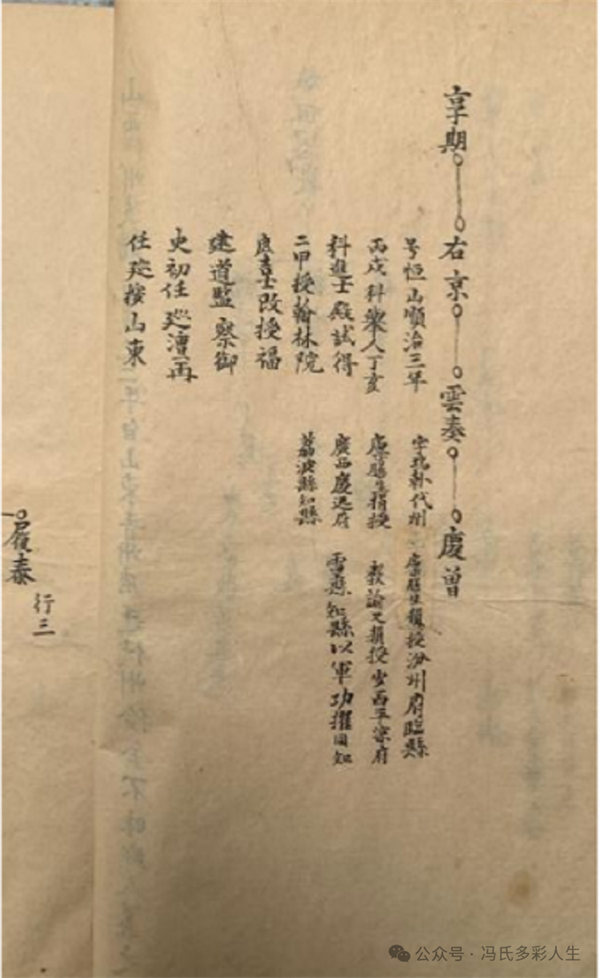 享期 右京 雲奏 慶曾
号恒山順治三年
丙戌科舉人丁亥
科進士殿試得
二甲授翰林院
庶吉士改授福
建道監察御
史初任廵漕再
任廵按山東
字 代州
廪膳生捐授
廣西慶远府
荔波縣知縣
廪膳生捐授汾州府臨縣
教諭又捐授 西平凉府
知縣以軍功擢同知
履泰
行三
公众号·冯氏多彩人生